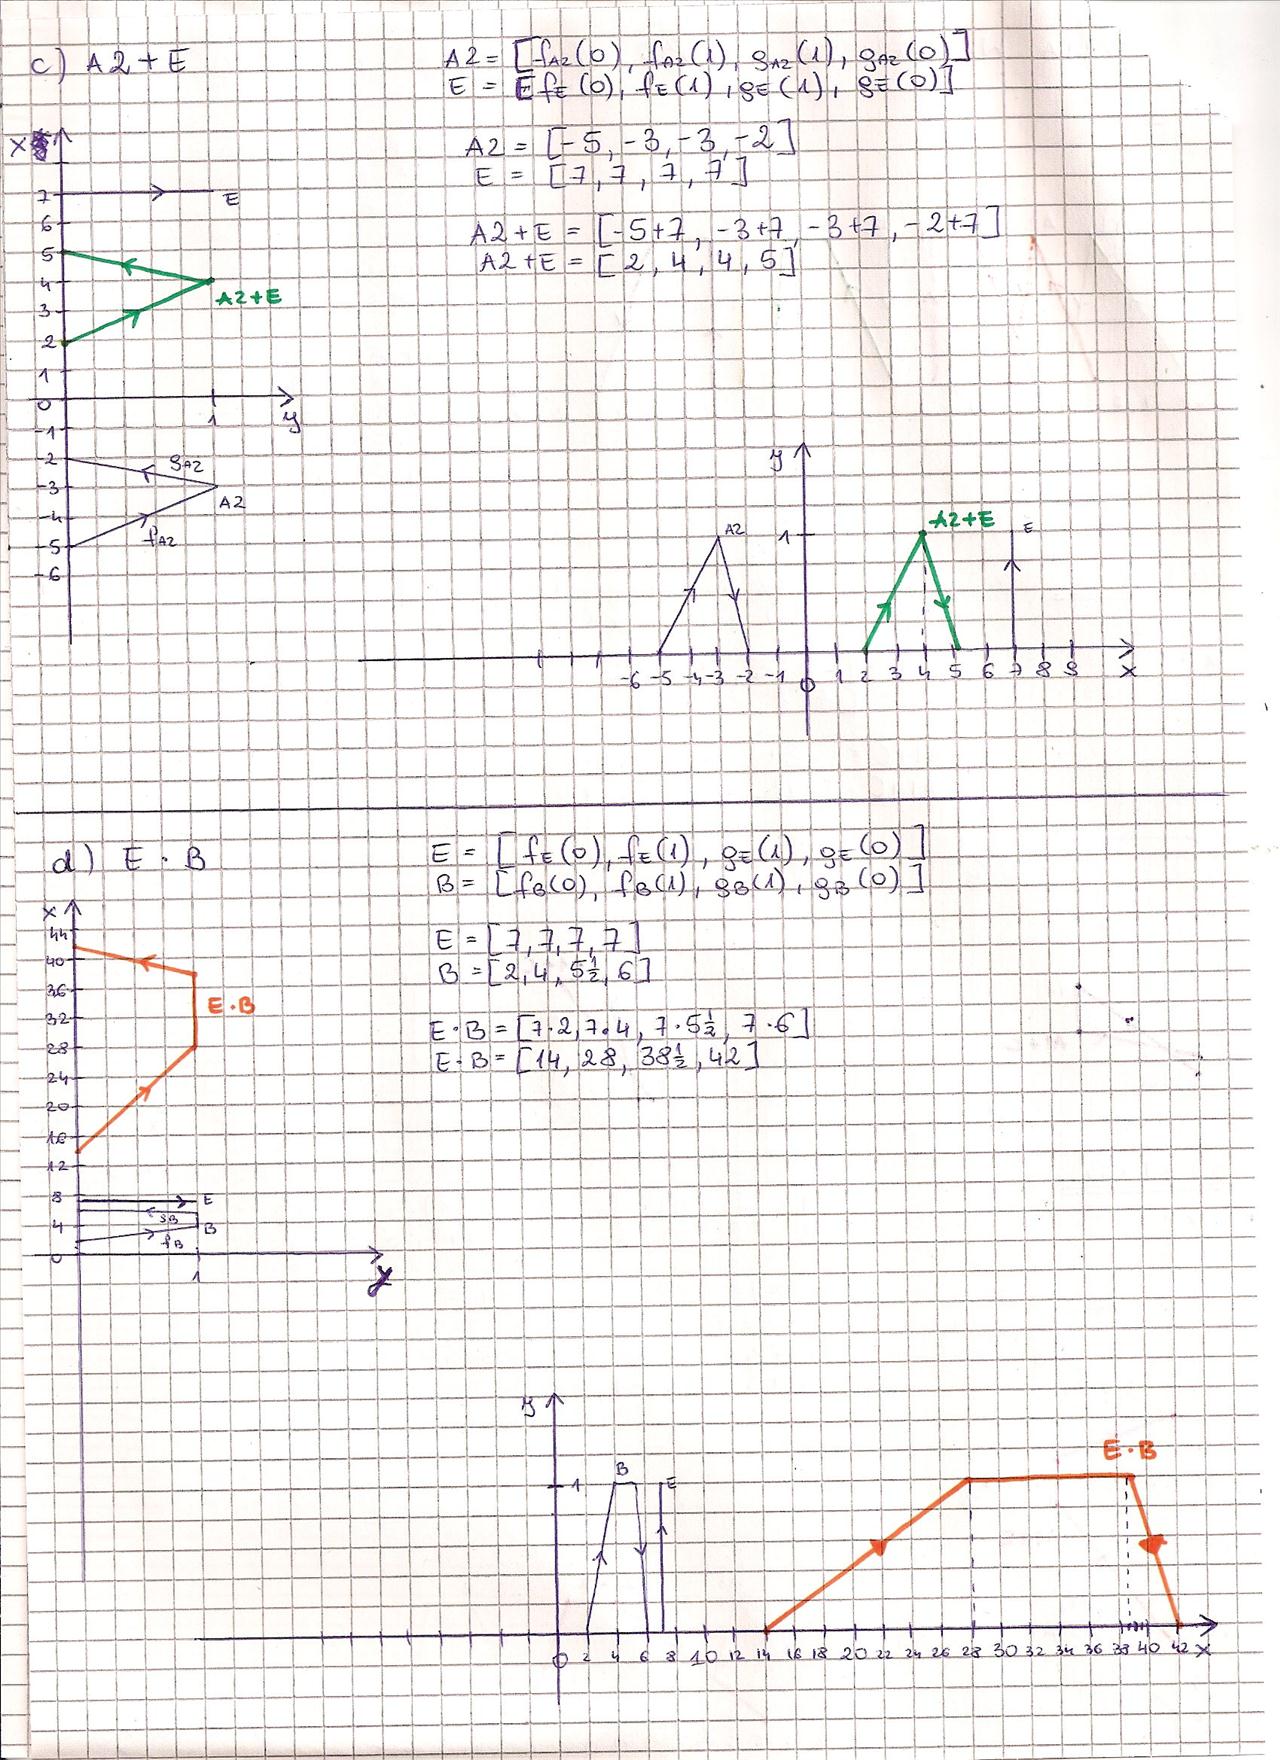 c) A2+E
A2 = [fA2(0), fA2(1), gA2(1), gA2(0)]
E = [fE(0), fE(1), gE(1), gE(0)]
A2 = [-5, -3, -3, -2]
E = [7, 7, 7, 7]
A2+E = [-5+7, -3+7, -3+7, -2+7]
A2+E = [2, 4, 4, 5]
x
7
E
6
5
4
A2+E
3
2
1
0
1
y
-1
-2
gA2
-3
A2
-4
fA2
-5
-6
y
A2
1
A2+E
E
-6 -5 -4 -3 -2 -1 0 1 2 3 4 5 6 7 8 9 x
d) E · B
E = [fE(0), fE(1), gE(1), gE(0)]
B = [fB(0), fB(1), gB(1), gB(0)]
E = [7, 7, 7, 7]
B = [2, 4, 5½, 6]
E·B = [7·2, 7·4, 7·5½, 7·6]
E·B = [14, 28, 38½, 42]
x
44
40
36
E·B
32
28
24
20
16
12
8
E
gB
4
B
fB
0
1
y
y
B
1
E
E·B
0 2 4 6 8 10 12 14 16 18 20 22 24 26 28 30 32 34 36 38 40 42 x